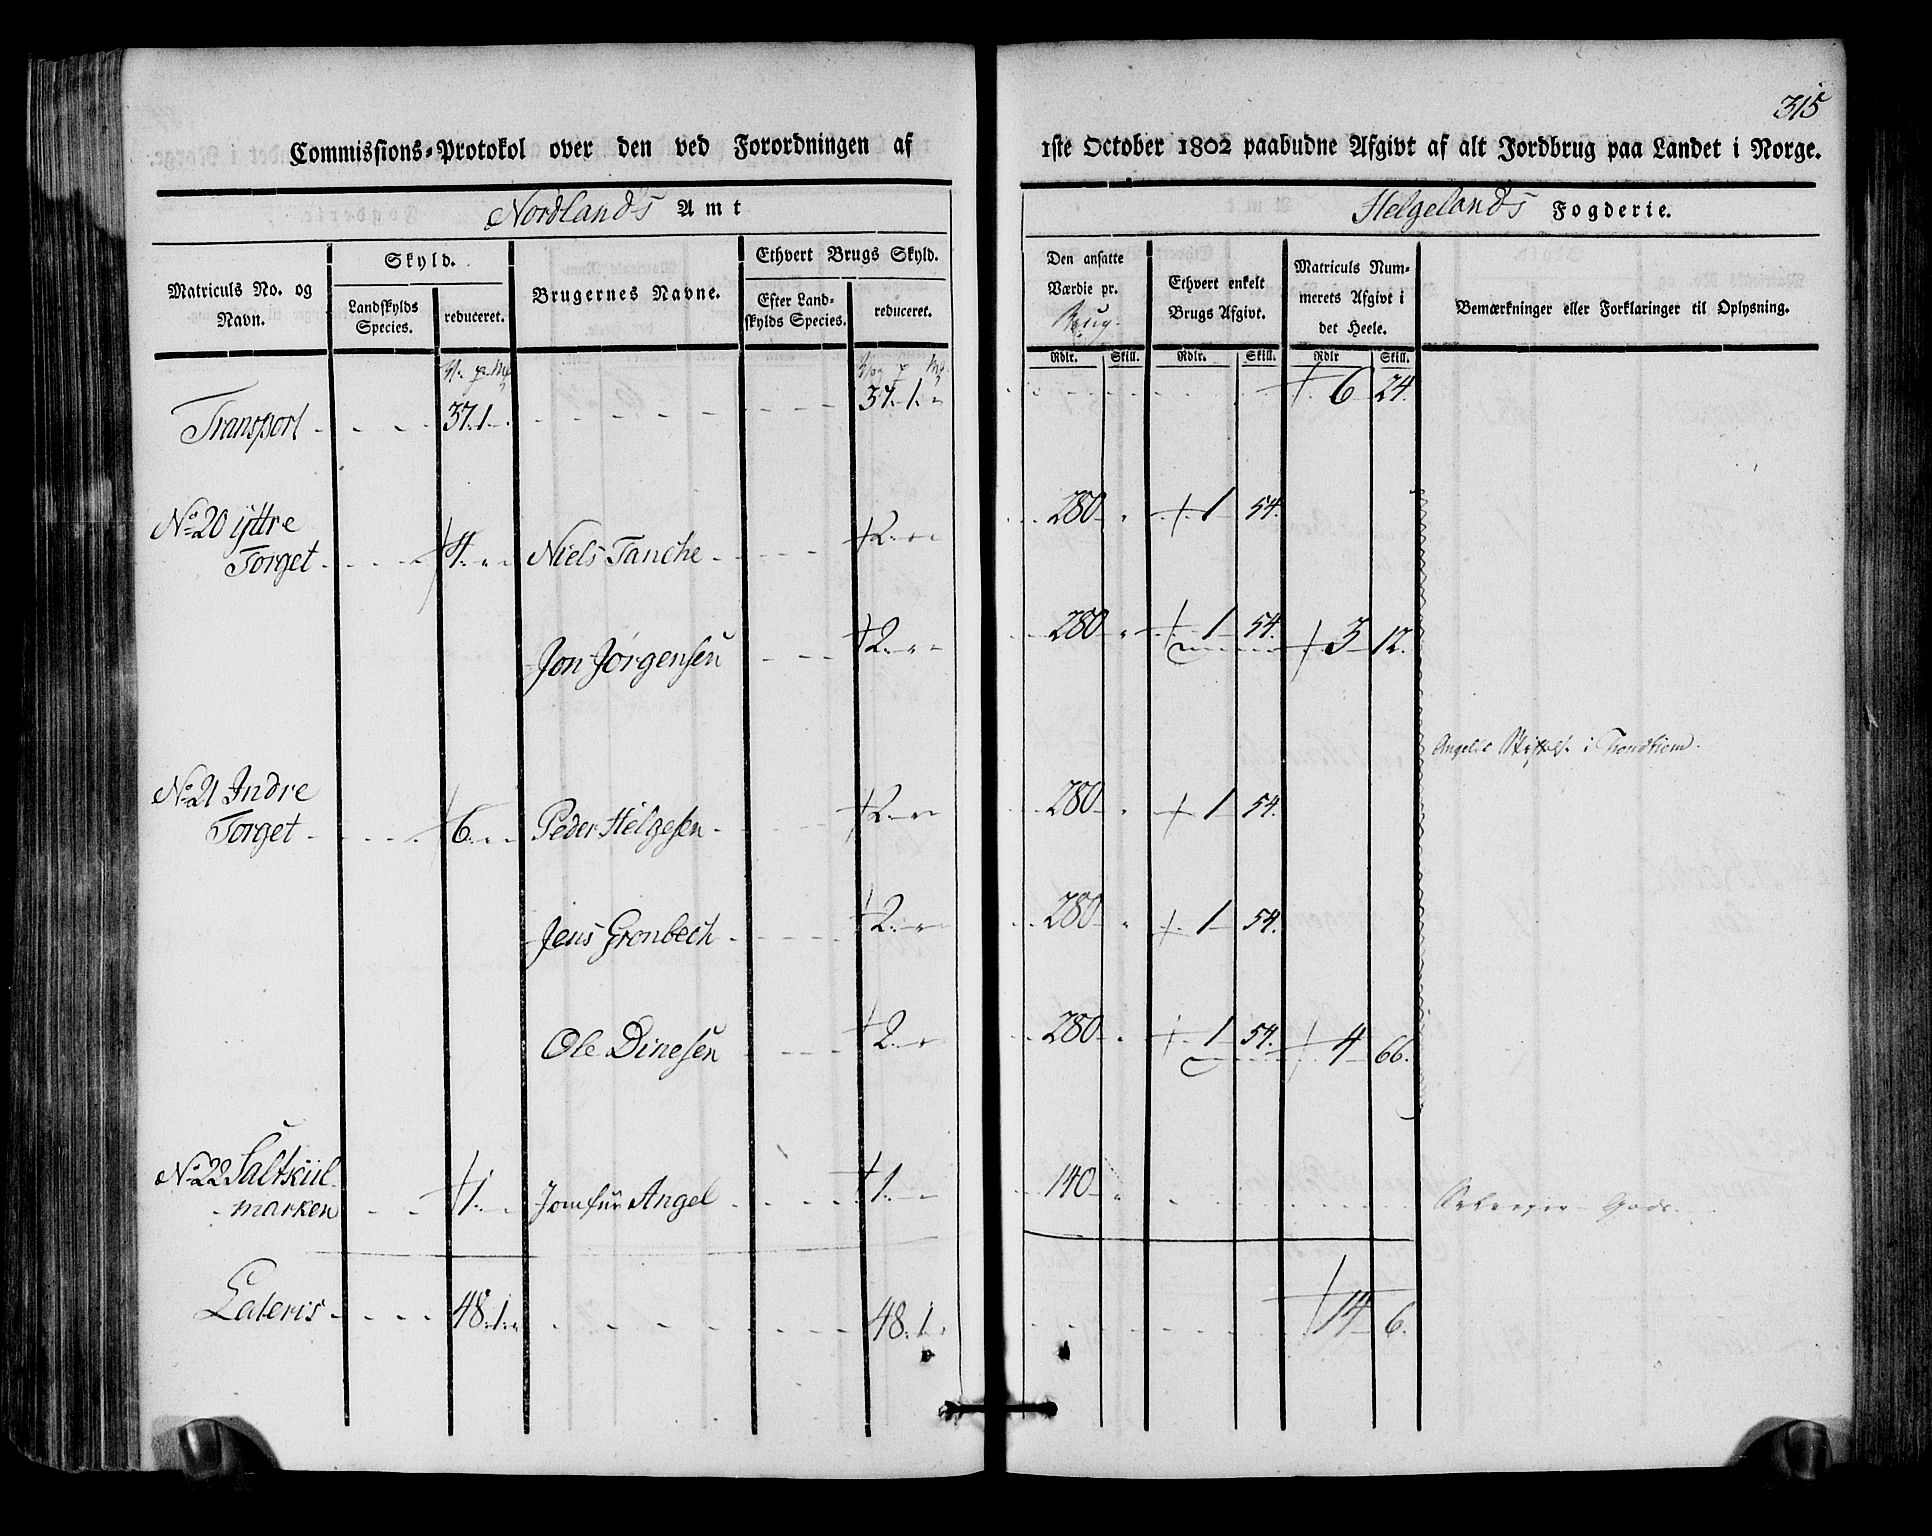 315
Commissions-Protokol over den ved Forordningen af 1ste October 1802 paabudne Afgivt af alt Jordbrug paa Landet i Norge.
Nordlands Amt
Helgelands Fogderie.
Matriculs No. og Navn.
Skyld.
Landskylds Species.
reduceret.
Brugernes Navne.
Ethvert Brugs Skyld.
Efter Landskylds Species.
reduceret.
Den ansatte Værdie pr. Brug.
Rdlr. Skill.
Ethvert enkelt Brugs Afgivt.
Rdlr. Skill.
Matriculs Nummerets Afgivt i det Heele.
Rdlr Skill.
Bemærkninger eller Forklaringer til Oplysning.
Transport 37. 1. 37. 1. 6 24.
No 20 ÿttre
Torget 4. Niels Tanche 2. 280 1 54.
Jon Jørgensen 2. 280 1 54. 3 12.
Angels Stiftelse i Trondhiem.
No 21 Indre
Torget 6. Peder Helgesen 2. 280 1 54.
Jens Grønbech 2. 280 1 54.
Ole Dinesen 2. 280 1 54. 4 66.
No 22 Saltkiil-
marken 1. Jomfur Angel 1. 140 Selveyer-Gods.
Lateris 48. 1. 48. 1. 14 6.